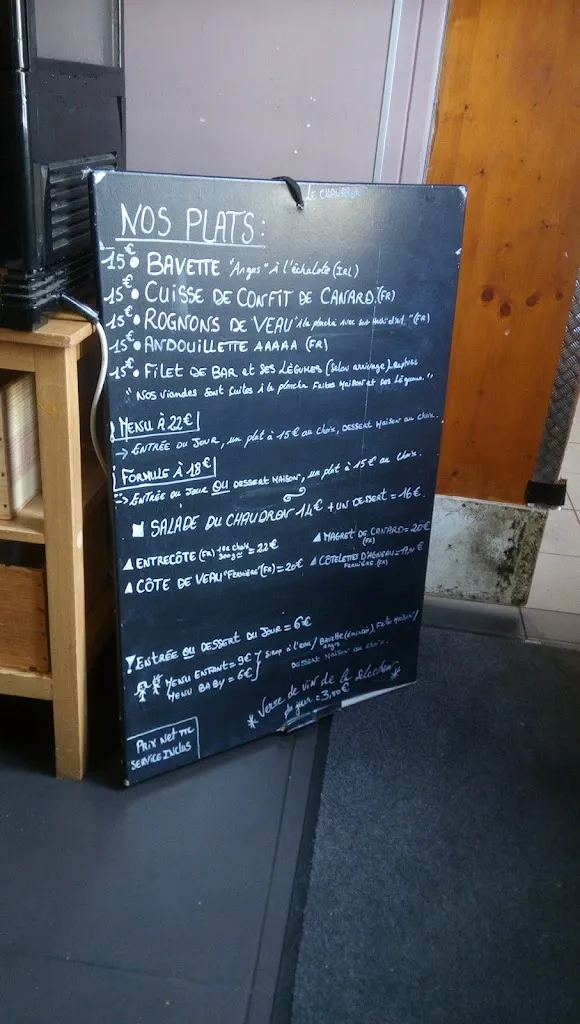 LE CHAUDRON
NOS PLATS:
15€ • BAVETTE "Angus" à l'échalote (IRL)
15€ • CUISSE DE CONFIT DE CANARD (FR)
15€ • ROGNONS DE VEAU "à la plancha avec son (FR)
15€ • ANDOUILLETTE AAAAA (FR)
15€ • FILET DE BAR et SES LÉGUMES (Selon arrivage)
"Nos viandes sont cuites à la plancha Frites Maison et ses Légumes."
MENU À 22€
→ ENTRÉE DU JOUR, un plat à 15€ au choix, DESSERT Maison au choix.
FORMULE À 18€
→ ENTRÉE DU JOUR OU DESSERT MAISON, un plat à 15€ au choix.
■ SALADE DU CHAUDRON 14€ + UN DESSERT = 16€.
▲ ENTRECÔTE (FR) 1er choix 300gr = 22€
▲ MAGRET DE CANARD = 20€ (FR)
▲ CÔTE DE VEAU "FERMIÈRE" (FR) = 20€
▲ CÔTELETTES D'AGNEAU = € FERMIÈRE (FR)
ENTRÉE OU DESSERT DU JOUR = 6€
MENU ENFANT = 9€
MENU BABY = 6€
} SIROP à l'EAU / BAVETTE (émincée) angus, Frites Maison /
DESSERT Maison au choix.
* Verre de vin de la sélection
du jour = 3,50€ *
PRIX NET TTC
SERVICE INCLUS